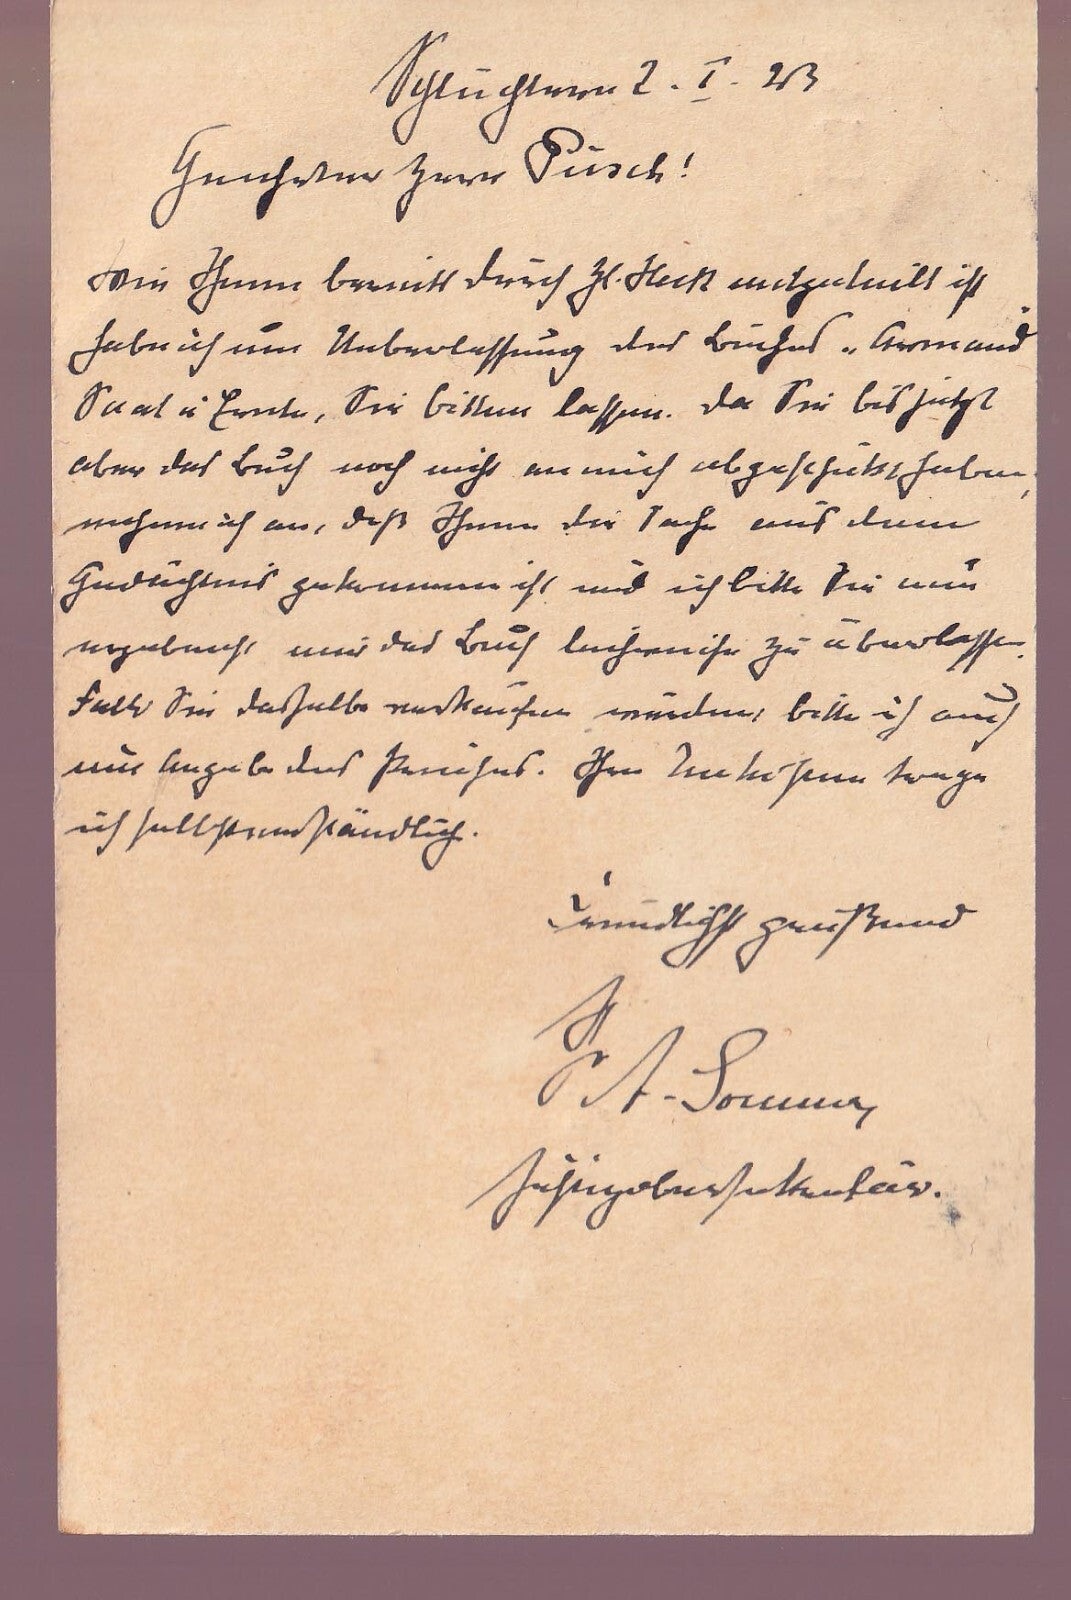 Schlüchtern 2. I. 23
Geehrter Herr Püsch!
Wie Ihnen bereits durch Hl. Heck mitgeteilt ist
habe ich um Ueberlassung des Buches "
Saat u Ernte, Sie bitten lassen. Da Sie bis jetzt
aber das Buch noch nicht an mich abgeschickt haben,
nehme ich an, daß Ihnen die Sache aus dem
Gedächtnis gekommen ist und ich bitte Sie nun
ergebenst mir das Buch leihweise zu überlassen.
Falls Sie dasselbe verkaufen würden, bitte ich auch
um Angabe des Preises. Ihre Unkosten trage
ich selbstverständlich.
Freundlichst grüßend
A. Sommer
Justizobersekretär.